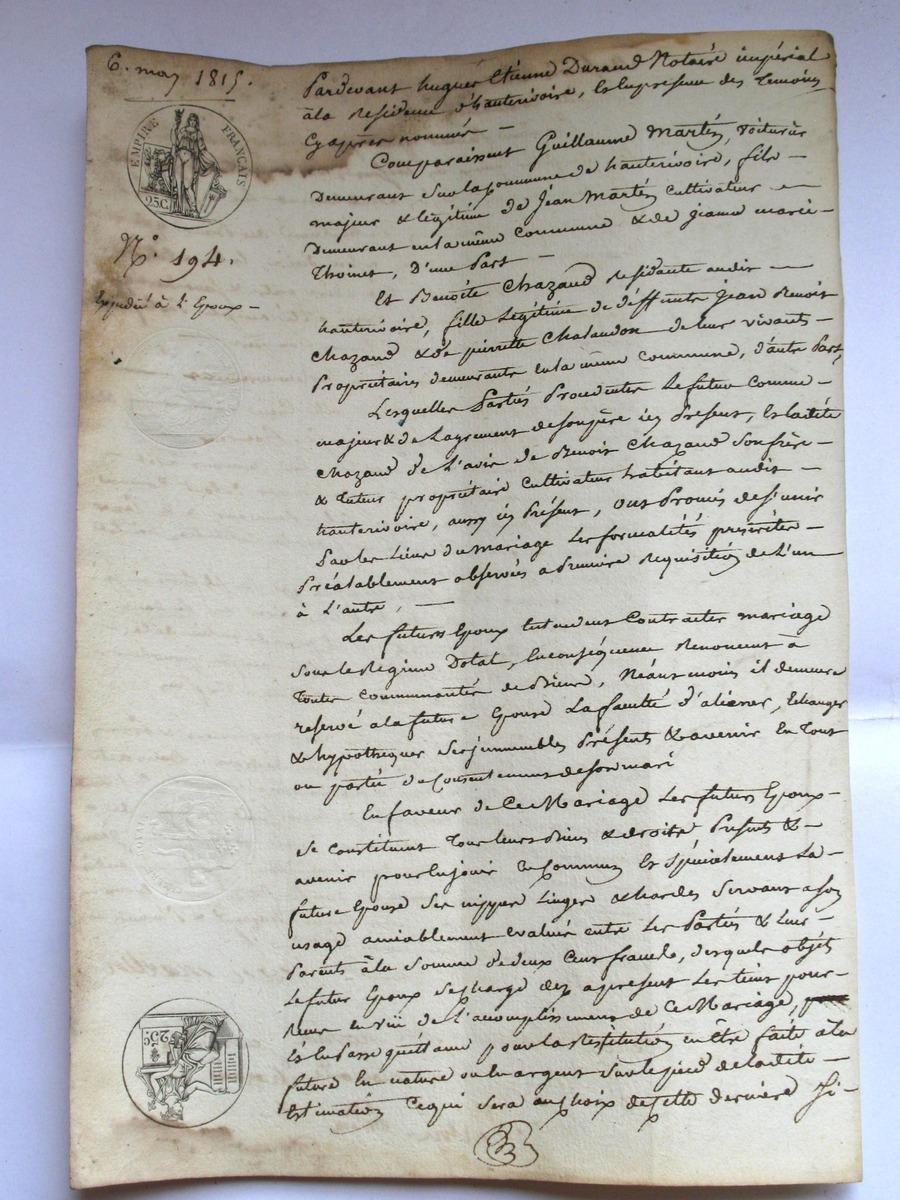 6. may 1815.
EMPIRE FRANÇAIS
25C.
N.° 194.
Expedié à L'Epoux —
Pardevant hugues Etienne Durand Notaire impérial
à la Residence d'hauterivoire, Et En presence des Temoins
Cy après nommés —
Comparaissent Guillaume Martin, voiturier
Demeurant sur la commune de hauterivoire, fils —
majeur & légitime de Jean Martin Cultivateur —
Demeurant en la même Commune & de jeanne marie —
Thoinet, D'une Part —
Et Benoite Chazaud Residante audit —
hauterivoire, fille Légitime de déffunts Jean Benoit
Chazaud & de pierrette Chalandon de leur vivant —
Propriétaires demeurants en la même commune, d'autre Part,
Lesquelles Parties Procedentes Le futur Comme —
majeur & de Lagrement de son père icy Present, Et ladite
Chazaud de L'avis de Benoit Chazaud son frère —
& tuteur propriétaire Cultivateur habitant audit —
hauterivoire, aussy icy Présent, ont Promis de s'unir
Par les Liens du mariage Les formalités prescrites —
Préalablement observées a Premiere Requisition de L'un
à L'autre, —
Les futurs Epoux Entendent Contracter mariage
sous le Régime Dotal, En conséquence Renoncent à
toute communauté de Biens, Néant moins il demeure
reservé a la future Epouse La faculté d'aliener, Echanger
& hypothequer ses immeubles Présents & avenir En Tout
ou partie du Consentement de son mari
En faveur de Ce Mariage Les futurs Epoux —
se constituent Tous leurs Biens & droits Presents & —
avenir pour En jouir En Commun Et spécialement La —
future Epouse ses nippes Linges & hardes servant a son
usage amiablement Evalués entre Les Parties & leurs —
Parents à la somme de deux Cent francs, desquels objets
Le futur Epoux se charge dez apresent Les tient pour —
Reçus en vüe de L'accomplissement de Ce Mariage,
Et En Passe quittance pour la Restitution En être faite à la
future En nature ou En argent sur le pied de ladite —
Estimation Ce qui sera au choix de Cette derniere Si —
25C.